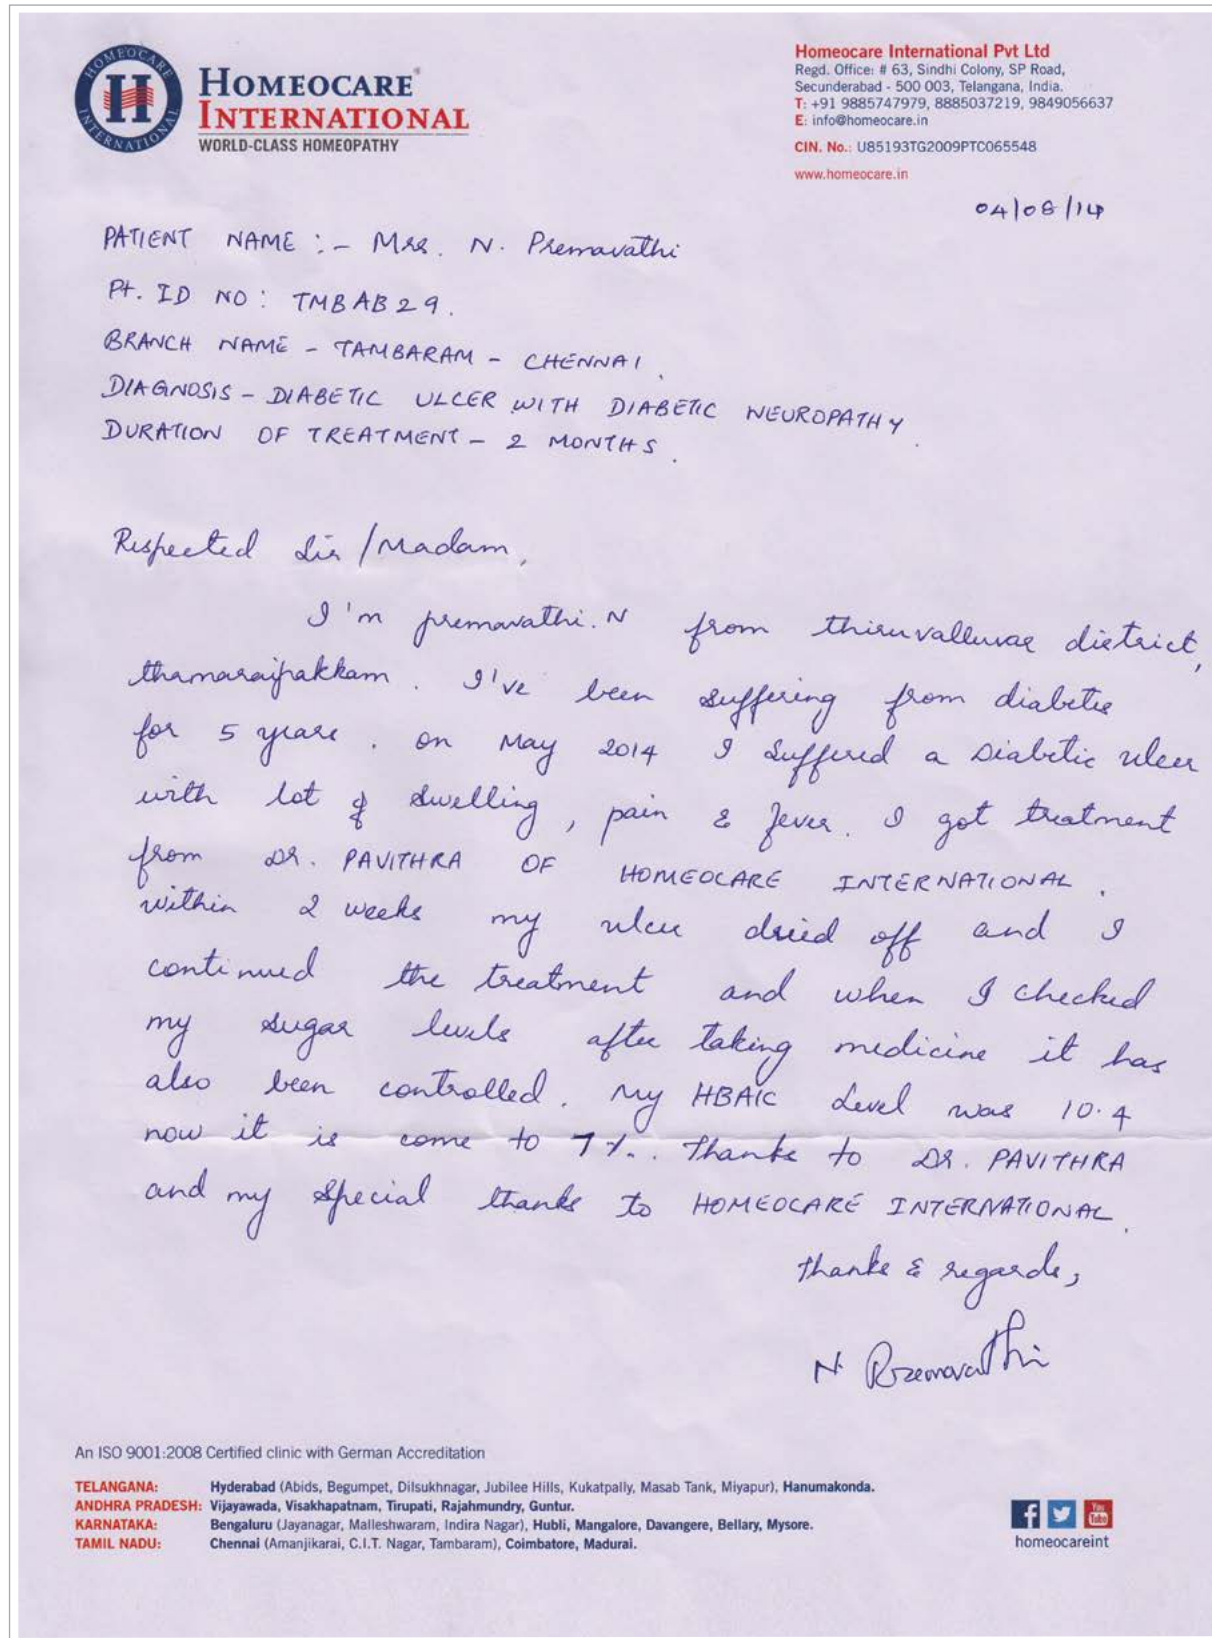 HOMEOCARE INTERNATIONAL
H
HOMEOCARE®
INTERNATIONAL
WORLD-CLASS HOMEOPATHY
Homeocare International Pvt Ltd
Regd. Office: # 63, Sindhi Colony, SP Road,
Secunderabad - 500 003, Telangana, India.
T: +91 9885747979, 8885037219, 9849056637
E: info@homeocare.in
CIN. No.: U85193TG2009PTC065548
www.homeocare.in
04/08/14
PATIENT NAME :- Mrs. N. Premavathi
Pt. ID NO : TMBAB29.
BRANCH NAME - TAMBARAM - CHENNAI.
DIAGNOSIS - DIABETIC ULCER WITH DIABETIC NEUROPATHY
DURATION OF TREATMENT - 2 MONTHS.
Respected Sir /Madam,
I'm premavathi.N from thiruvalluvar district,
thamaraipakkam. I've been suffering from diabetis
for 5 years. on May 2014 I suffered a Diabetic ulcer
with lot of swelling, pain & fever. I got treatment
from DR. PAVITHRA OF HOMEOCARE INTERNATIONAL.
within 2 weeks my ulcer dried off and I
continued the treatment and when I checked
my sugar levels after taking medicine it has
also been controlled. My HBAIC Level was 10.4
now it is come to 7%. Thanks to DR. PAVITHRA
and my special thanks to HOMEOCARE INTERNATIONAL.
thanks & regards,
N Premavathi
An ISO 9001:2008 Certified clinic with German Accreditation
TELANGANA: Hyderabad (Abids, Begumpet, Dilsukhnagar, Jubilee Hills, Kukatpally, Masab Tank, Miyapur), Hanumakonda.
ANDHRA PRADESH: Vijayawada, Visakhapatnam, Tirupati, Rajahmundry, Guntur.
KARNATAKA: Bengaluru (Jayanagar, Malleshwaram, Indira Nagar), Hubli, Mangalore, Davangere, Bellary, Mysore.
TAMIL NADU: Chennai (Amanjikarai, C.I.T. Nagar, Tambaram), Coimbatore, Madurai.
You Tube
homeocareint